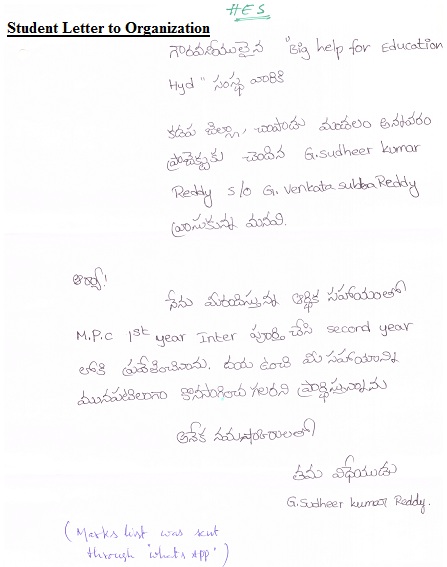 HES
Student Letter to Organization
గౌరవనీయులైన "Big help for Education
Hyd" సంస్థ వారికి
కడప జిల్లా, చాపాడు మండలం అనావరం
ప్రొద్దుటూరుకు చెందిన G.sudheer kumar
Reddy s/o G. Venkata subba Reddy
వ్రాసుకున్న మనవి.
ఆర్యా!
నేను మీరందిస్తున్న ఆర్థిక సహాయంతో
M.P.C 1st year Inter పూర్తి చేసి second year
లోకి ప్రవేశించినాను. దయ ఉంచి మీ సహాయాన్ని
మునపటిలాగా కొనసాగించ గలరని ప్రార్థిస్తున్నాను
అనేక నమస్కారాలతో
తమ విధేయుడు
G.Sudheer kumar Reddy.
(Marks list was sent
through 'whats app')